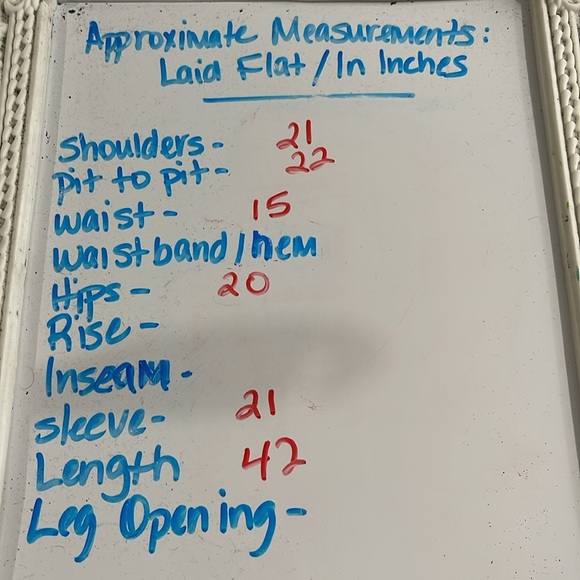 Approximate Measurements:
Laid Flat / In Inches
Shoulders - 21
pit to pit - 22
waist - 15
waistband / hem
Hips - 20
Rise -
Inseam -
sleeve - 21
Length 42
Leg Opening -